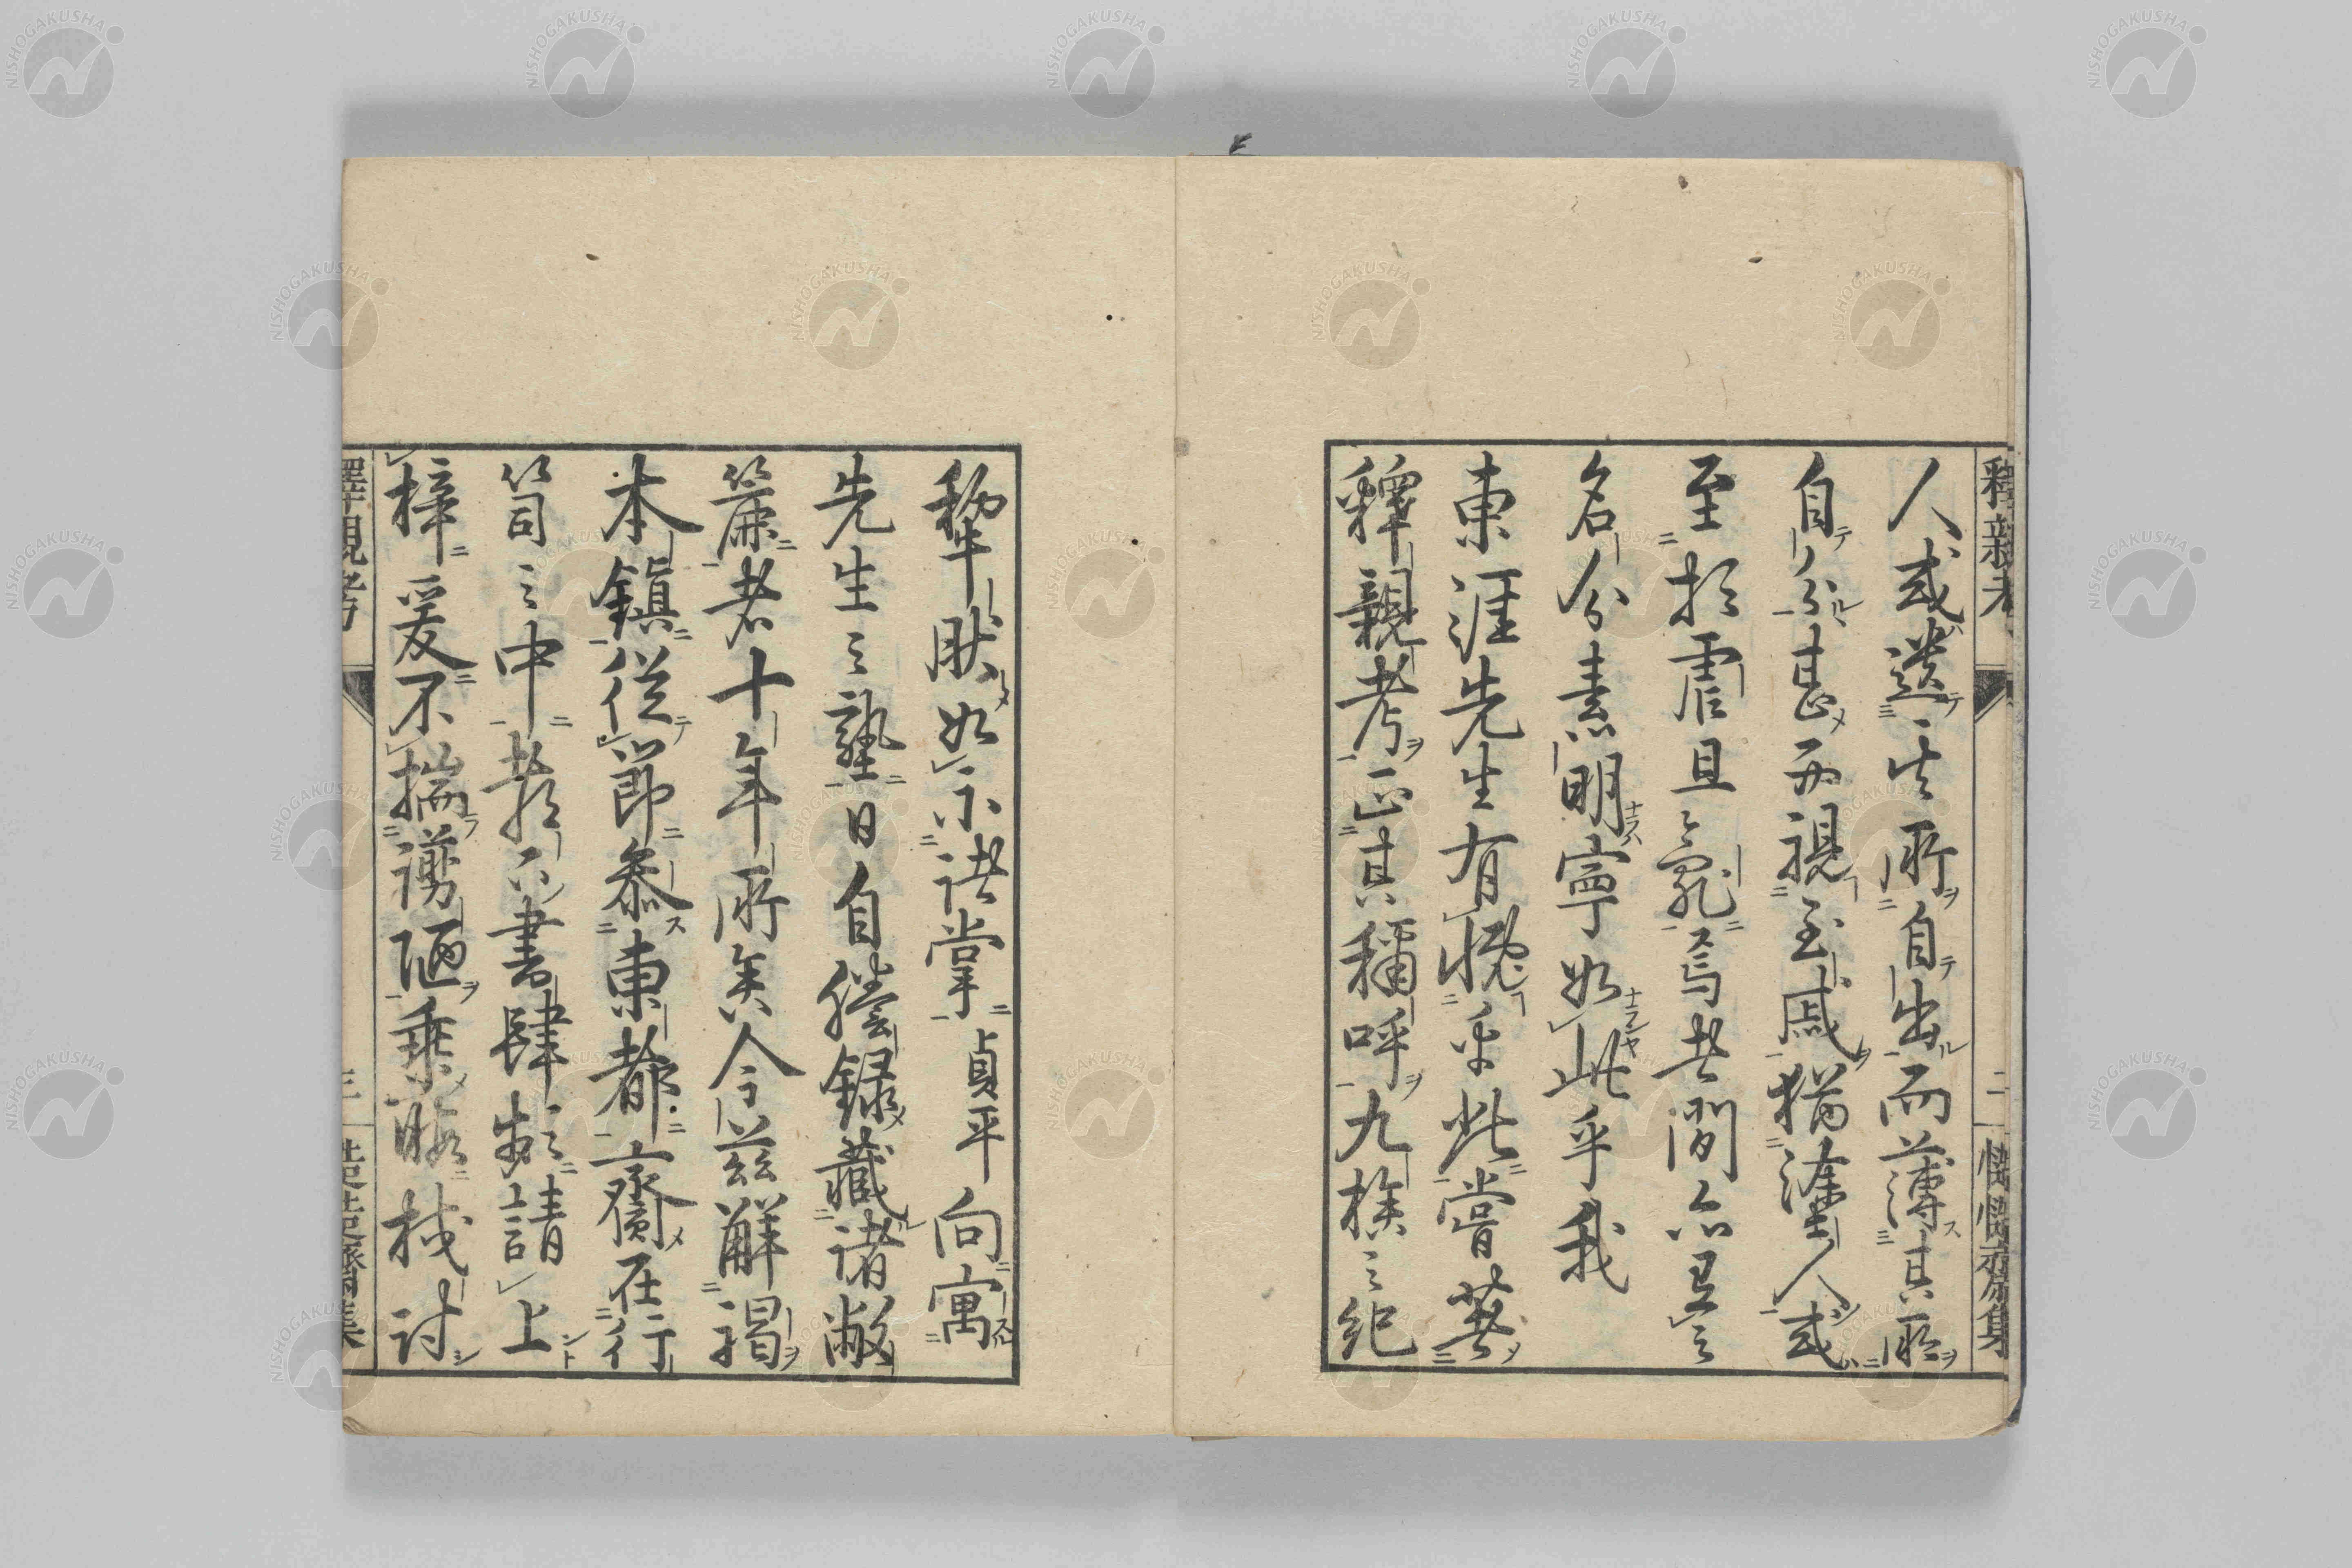 釋親考
二
慥慥齋集
人或遺其所自出而薄其所
自分甚而視至戚猶塗人或
至於震且亂焉者間亦有之
名分素明寧如此乎我
東涯先生有慨乎此嘗著
釋親考正其稱呼九族之紀
犂然如示諸掌貞平向寓
先生之塾日自謄錄藏諸敝
簏者十年所矣今茲解褐
本鎮從節參東都齎在行
笥之中若干書肆頻請上
梓爰不揣謭陋乘暇校讎
釋親考
三
慥慥齋集